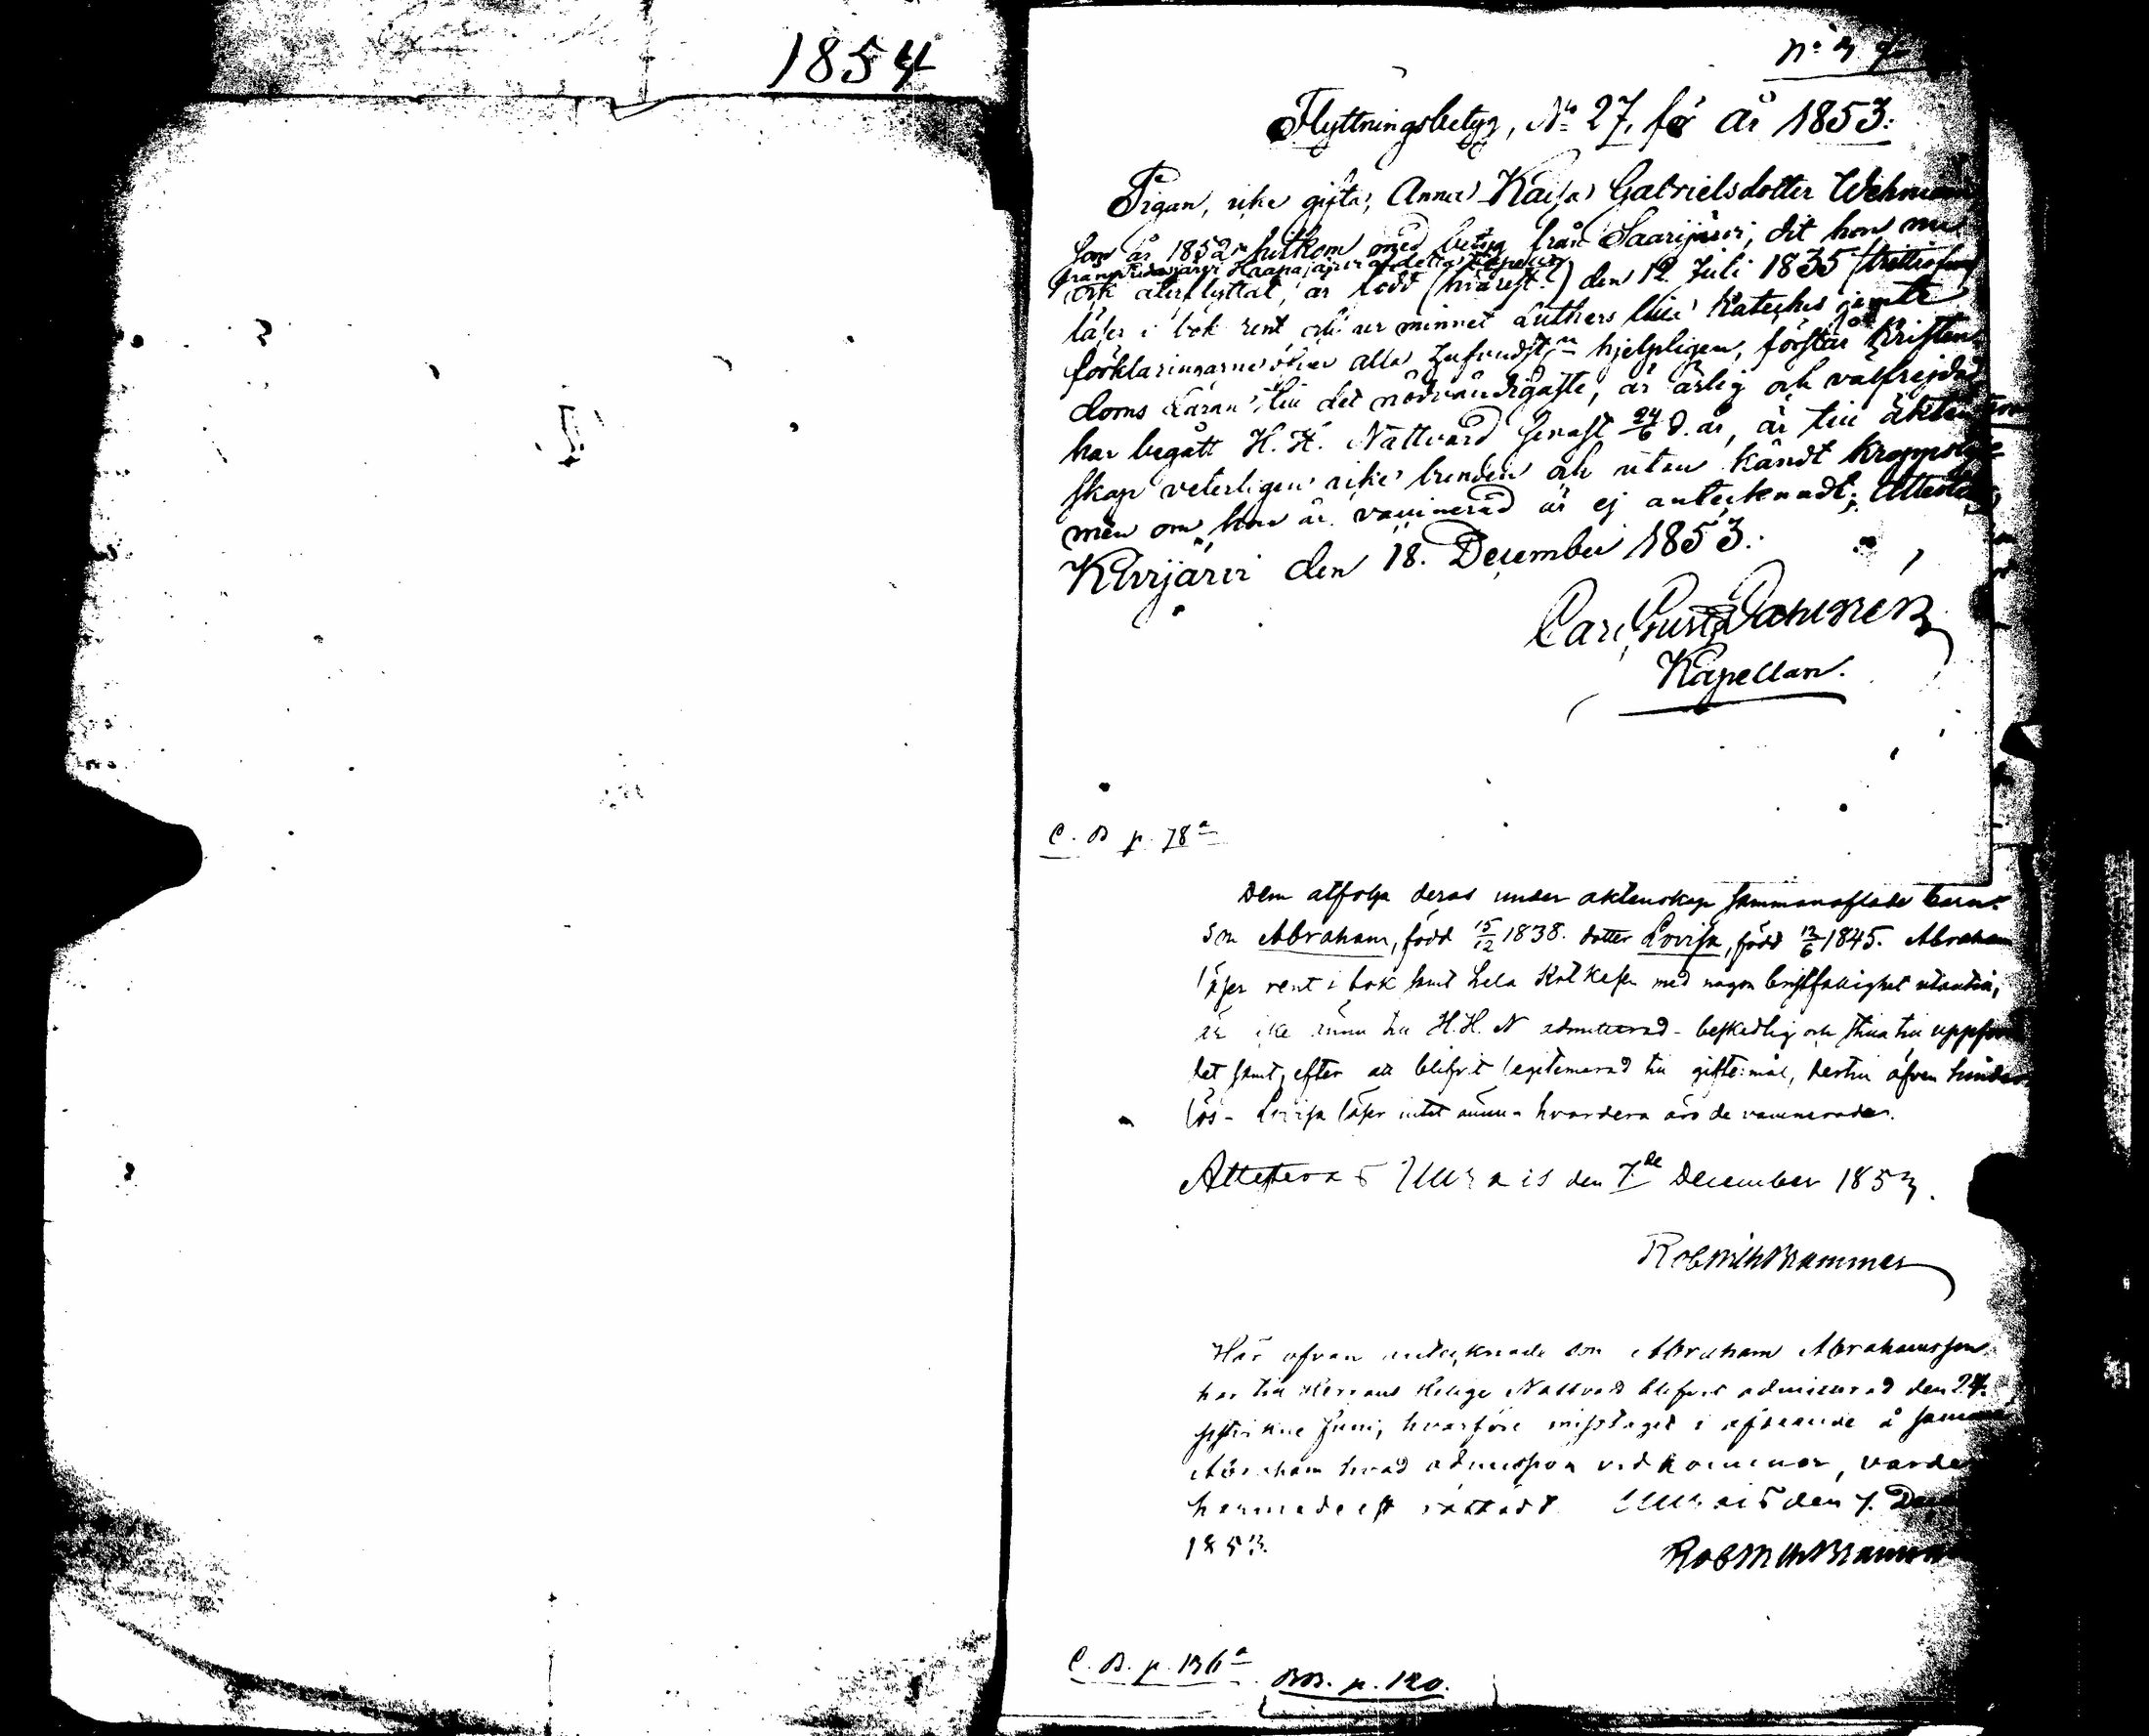 1854
No 34
Flyttningsbetyg, No 27, för år 1853.
Pigan, icke gifta, Anna Kaisa Gabrielsdotter Wehman
som år 1852 hitkom med betyg från Saarijärvi, dit hon nu
från
och återflyttat, är född (hvarest?) den 12 Juli 1835 (trettiofem)
läser i bok rent och ur minnet Luthers lilla Kateches jemte
förklaringarne öfver alla hjelpligen, förstår Kristen
doms Läran till det nödvändigaste, är ärlig och välfrejdad
har begått H. H. Nattvard senast 24/6 d. år, är till äkten
skap veterligen icke bunden och utan kändt kroppslyte
men om hon är vaccinerad är ej antecknadt; Attesteras
Kivijärvi den 18. December 1853.
Carl Gust
Kapellan.
C. B p. 78a
Dem åtfölja deras under äktenskap sammanaflade barn:
Son Abraham, född 15/12 1838. dotter Lovisa, född 12/6 1845. Abraham
läser rent i bok samt hela Katkesen med någon bristfällighet utantill,
är icke ännu till H. H. N admitterad - beskedlig och stilla till uppföran
det samt, efter att blifvit legitimerad till giftermål, dertill äfven hinder
lös - Lovisa läser intet ännu - hvardera äro de vaccinerade.
Attesteras den 7de December 1853.
Här ofvan antecknade son Abraham Abrahamsson
har till Herrans Heliga Nattvard blifvit admitterad den 24.
sistlidne Juni, hvarföre misstaget i afseende å samme
Abraham hvad admission vedkommer, varder
härmedelst rättadt. den 7. Dec
1853.
C. B. p. 136a BB. p. 120.